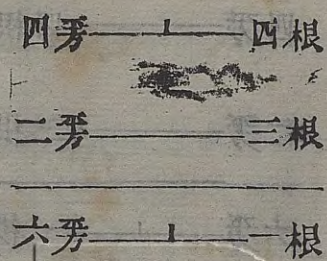 四平方⊥四根
二平方—三根
六平方⊥一根